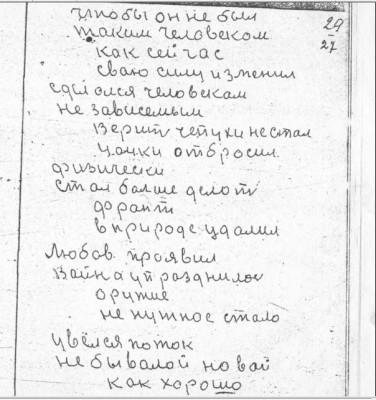 29
27
чтобы он не был
таким человеком
как сейчас
сваю силу изменил
сделолся человекам
не зависемым
верит чепухи не стал
цацки отбросил
физически
стал болше делоть
франт
в природе удалил
Любов проявил
Вайна упразднилос
оружие
не нужное стало
увёлся поток
небывалой новай
как хорошо